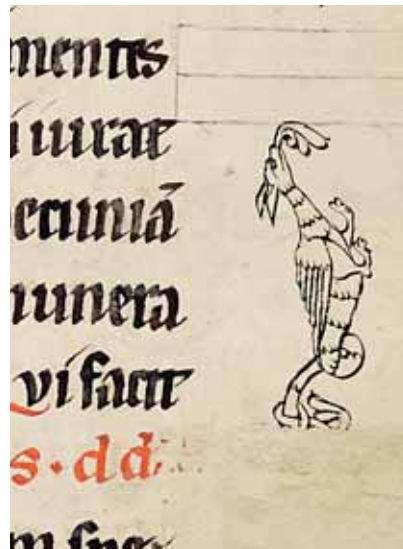 mentes
i iurat
ecuniā
munera
vi facit
s · dd